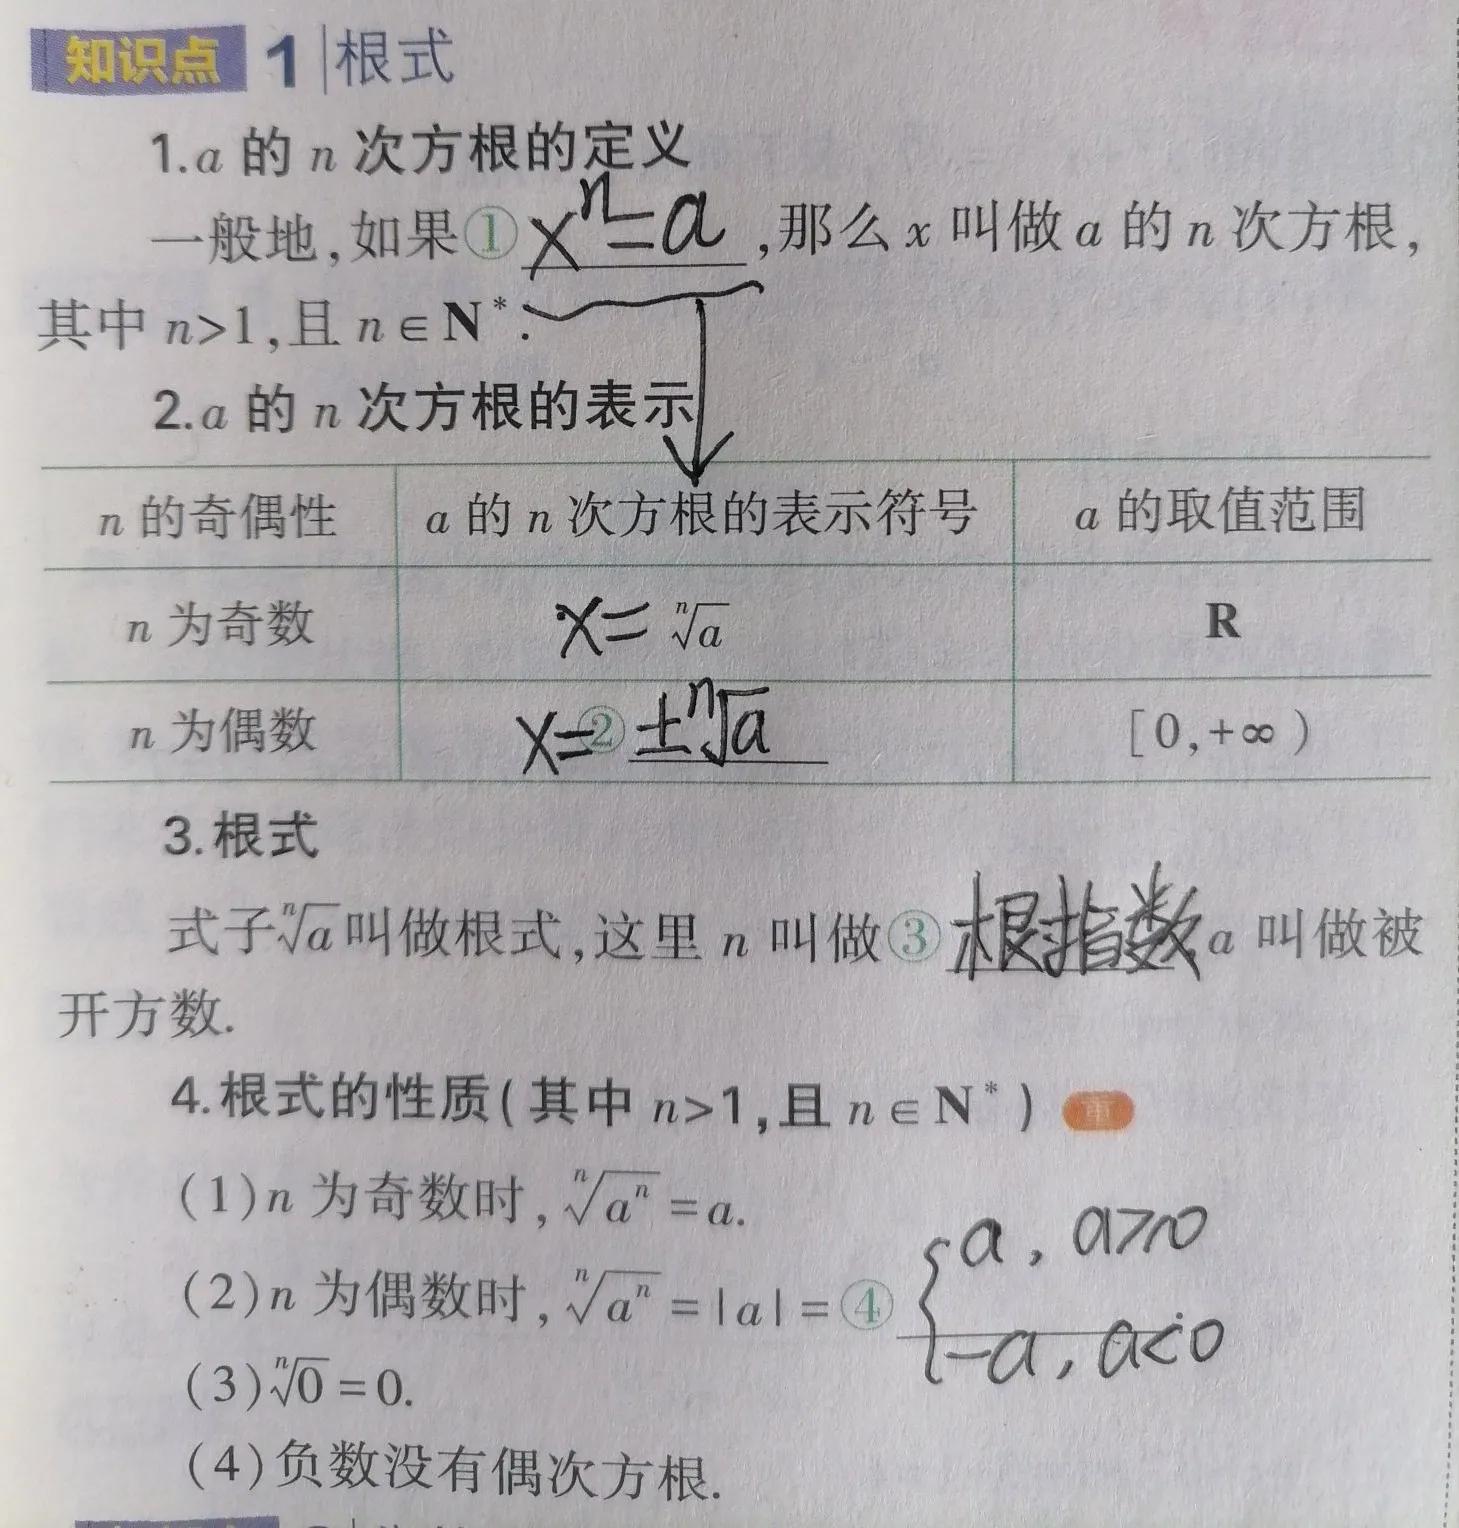 知识点 1 | 根式
1.a 的 n 次方根的定义
一般地,如果① xⁿ=a ,那么 x 叫做 a 的 n 次方根,
其中 n>1,且 n∈N*.
2.a 的 n 次方根的表示
n 的奇偶性 a 的 n 次方根的表示符号 a 的取值范围
n 为奇数 x= ⁿ√a R
n 为偶数 x=② ±ⁿ√a [0,+∞)
3.根式
式子ⁿ√a叫做根式,这里 n 叫做③根指数 a 叫做被
开方数.
4.根式的性质(其中 n>1,且 n∈N*) 重
(1)n 为奇数时,ⁿ√aⁿ=a.
a, a≥0
(2)n 为偶数时,ⁿ√aⁿ=|a|=④ {
-a, a<0
(3)ⁿ√0=0.
(4)负数没有偶次方根.